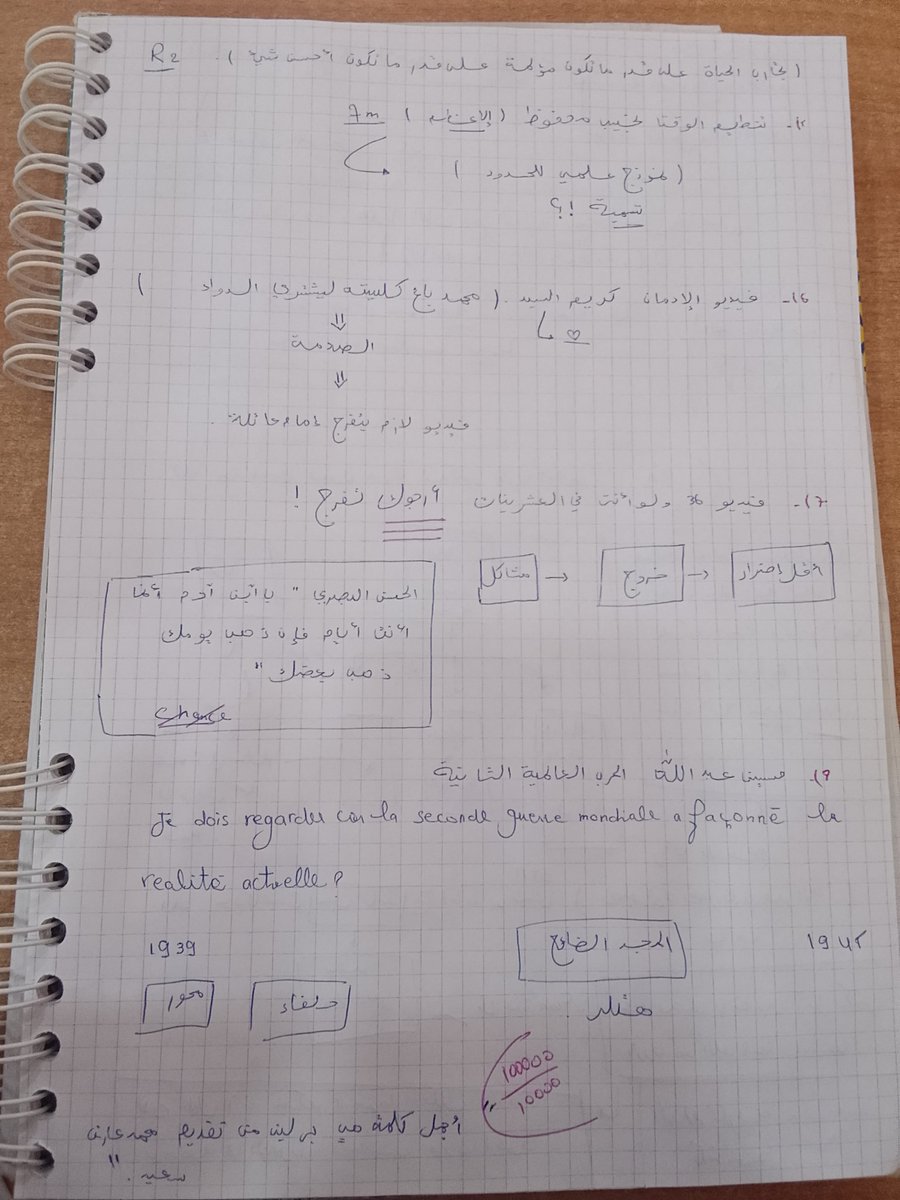 (تجارب الحياة على قدر ما تكون مؤلمة على قدر ما تكون أحسن شيئ). R2
تنظيم الوقت نجيب محفوظ 7m
(نموذج علمي للحدود)
تسمية !؟
16- فيديو الإدمان كريم السيد. (محمد باع كليته ليشتري الدواء)
الصدمة
فيديو لازم يتفرج
17- فيديو 36 ولو أنت في العشرينات أرجوك تفرج !
خروج → مشاكل
الحسن البصري " يا آبن آدم أنما
أنت أيام فإن ذهب يومك
ذهب بعضك "
19- عبد الله الحرب العالمية الثانية
Je dois regarder car la seconde guerre mondiale a façonné la
realité actuelle?
1939 المجد الضائع 1945
محور حلفاء هتلر
100000
10000
كلمة برلين من تقديم محمد عارف